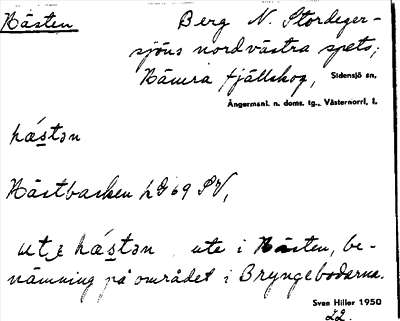 Nästen
Berg N. Stordeger-
sjöns nordvästra spets;
Nämra fjällskog, Sidensjö sn,
Ångermanl. n. doms. tg., Västernorrl. l.
hástən
Nästbacken hG 69 SV,
ute hástən ute i Nästen, be-
nämning på området i Bryngebodarna.
Sven Hiller 1950
22.